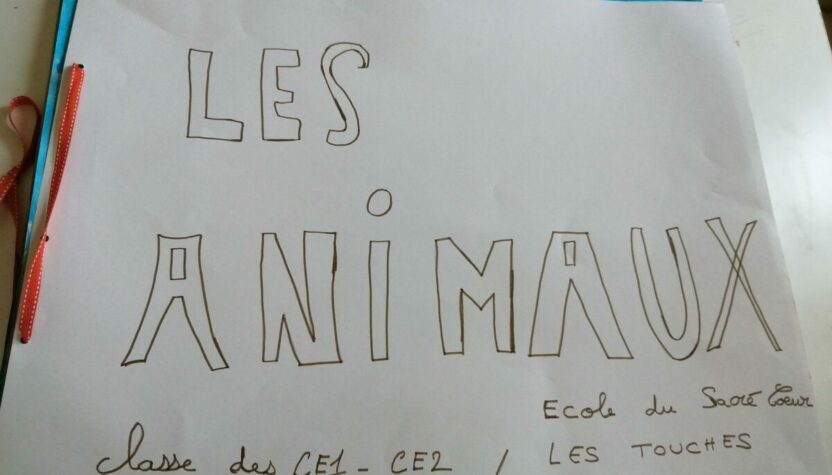 LES
ANiMAUX
Ecole du Sacré Coeur
classe des CE1 - CE2 / LES TOUCHES